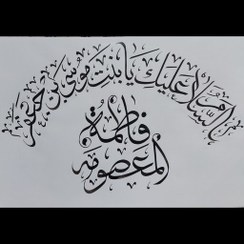 السلام عليك يا بنت موسى بن جعفر
فاطمة
المعصومه